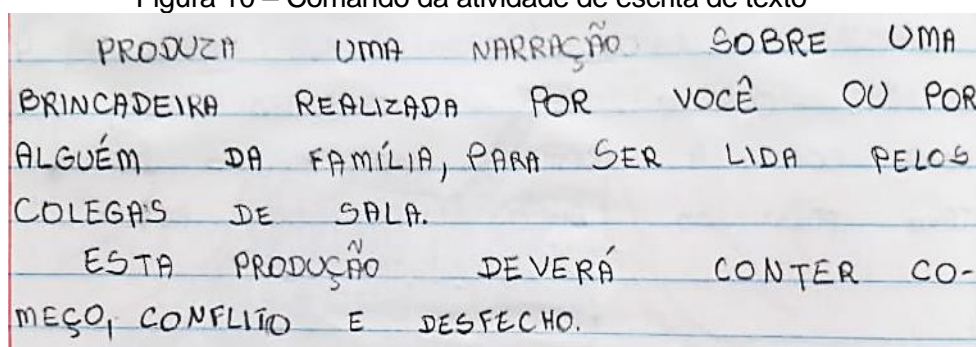 Figura 10 – Comando da atividade de escrita de texto
PRODUZA UMA NARRAÇÃO SOBRE UMA
BRINCADEIRA REALIZADA POR VOCÊ OU POR
ALGUÉM DA FAMÍLIA, PARA SER LIDA PELOS
COLEGAS DE SALA.
ESTA PRODUÇÃO DEVERÁ CONTER CO-
MEÇO, CONFLITO E DESFECHO.